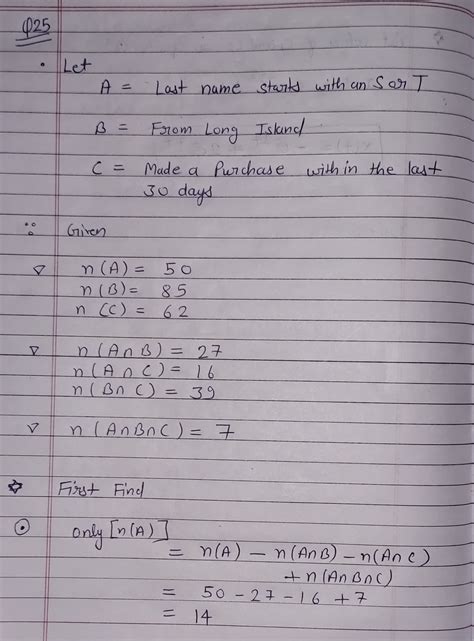 Q25
• Let
A = Last name starts with an S or T
B = From Long Island
C = Made a Purchase with in the last
30 days
Given
n(A) = 50
n(B) = 85
n(C) = 62
n(A∩B) = 27
n(A∩C) = 16
n(B∩C) = 39
n(A∩B∩C) = 7
First Find
only [n(A)]
= n(A) − n(A∩B) − n(A∩C)
+ n(A∩B∩C)
= 50 − 27 − 16 + 7
= 14